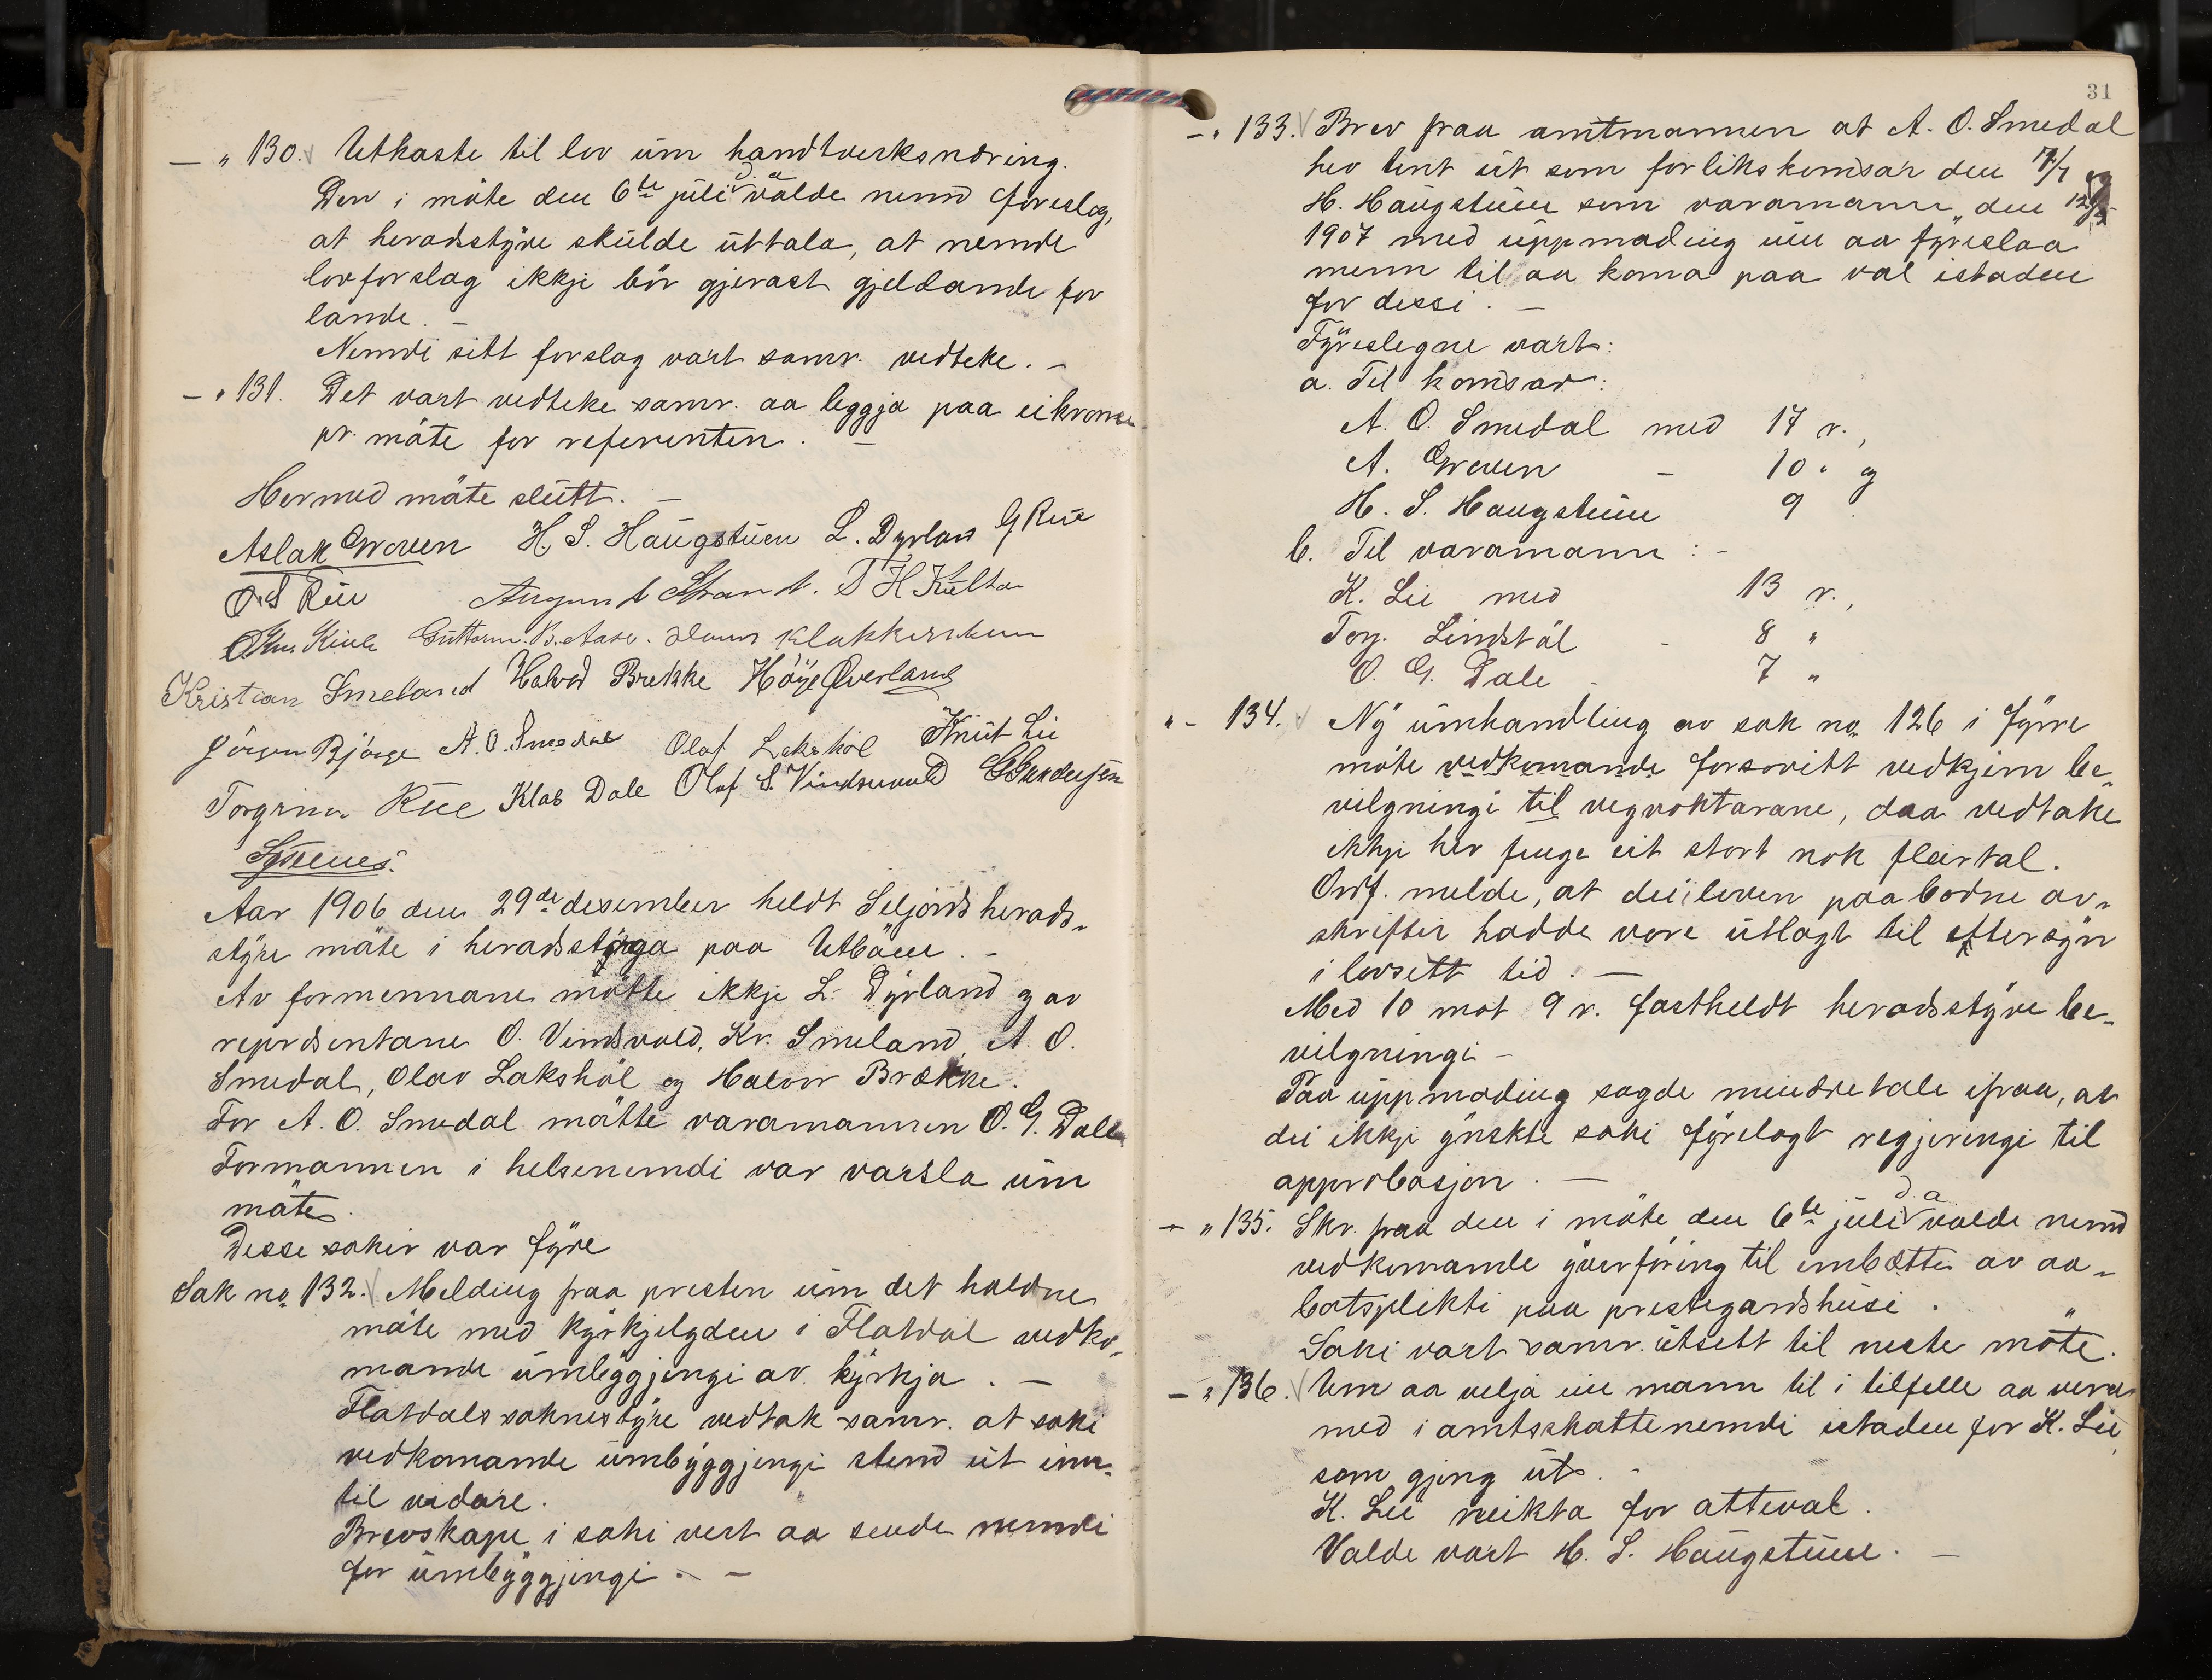 — „ 130. Utkaste til lov um handtverksnæring.
Den i møte den 6te juli d. a. valde nemd foreslog,
at heradsstyre skulde uttala, at nemde
lovforslag ikkje bør gjerast gjeldande for
lande. —
Nemdi sitt forslag vart samr. vedteke. —
— „ 131. Det vart vedteke samr. aa leggja paa ei krone
pr. møte for referenten. —
Hermed møte slutt. —
Aslak Groven H. S. Haugstuen L. Dyrland G Rue
O. S Rui Augund Strand. T H Kultan
Guttorm. B. Aase. Hans Klakkerskuen
Kristian Smeland Halvord Brekke Høye Øverland
Jørgen Bjørge A. O. Smedal Olaf Lakshol Knut Lii
Torgrim Rue Klas Dale Olaf S. Vindsvold G Gundersen
Aar 1906 den 29de desember heldt Seljord herads-
styre møte i heradsstoga paa Utbøen. —
Av formennane møtte ikkje L. Dyrland og av
reprdsentane O. Vindsvold, Kr. Smeland, A. O.
Smedal, Olav Lakshol og Halvor Brække.
For A. O. Smedal møtte varamannen O. G. Dale
Formannen i helsenemdi var varsla um
møte.
Desse sakir var fyre
Sak no 132. Melding fraa presten um det haldne
møte med kyrkjelyden i Flatdal vedko-
mande umbyggjingi av kyrkja. —
Flatdals soknestyre vedtok samr. at saki
vedkomande umbyggjingi stend ut inn-
til vidare.
Brevskape i saki vert aa sende nemdi
for umbyggjingi. —
31
— „ 133. Brev fraa amtmannen at A. O. Smedal
hev tent ut som forlikskomisar den 7/7 og
H. Haugstuen som varamann den
1907 med uppmoding um aa fyreslaa
menn til aa koma paa val istaden
for dessi. —
Fyreslegne vart:
a. Til komisar:
A. O. Smedal med 17 r.,
A. Groven — 10 „ og
H. S. Haugstuen 9
b. Til varamann: —
K. Lii med 13 r.,
Torg. Lindstøl - 8 „
O. G. Dale - 7 „
„ - 134. Ny umhandling av sak no 126 i fyrre
møte vedkomande forsovitt vedkjem be-
vilgningi til vegvoktarane, daa vedtake
ikkje hev fenge eit stort nok fleirtal.
Ordf. melde, at dei i loven paabodne av-
skrifter hadde vore utlagt til ettersyn
i lovsett tid. —
Med 10 mot 9 r. fastheldt heradsstyre be-
vilgningi —
Paa uppmoding sagde mindretale ifraa, at
dei ikkje ynskte saki fyrelagt regjeringi til
approbasjon. —
— „ 135. Skr. fraa den i møte den 6te juli d. a valde nemd
vedkomande yverføring til embætte av aa-
botsplikti paa prestegardshusi.
Saki vart samr. utsett til neste møte.
— „ 136. Um aa velja ein mann til i tilfelle aa vera
med i amtsskattenemdi istaden for K. Lii
som gjeng ut. -
K. Lii neikta for atteval.
Valde vart H. S. Haugstuen. —